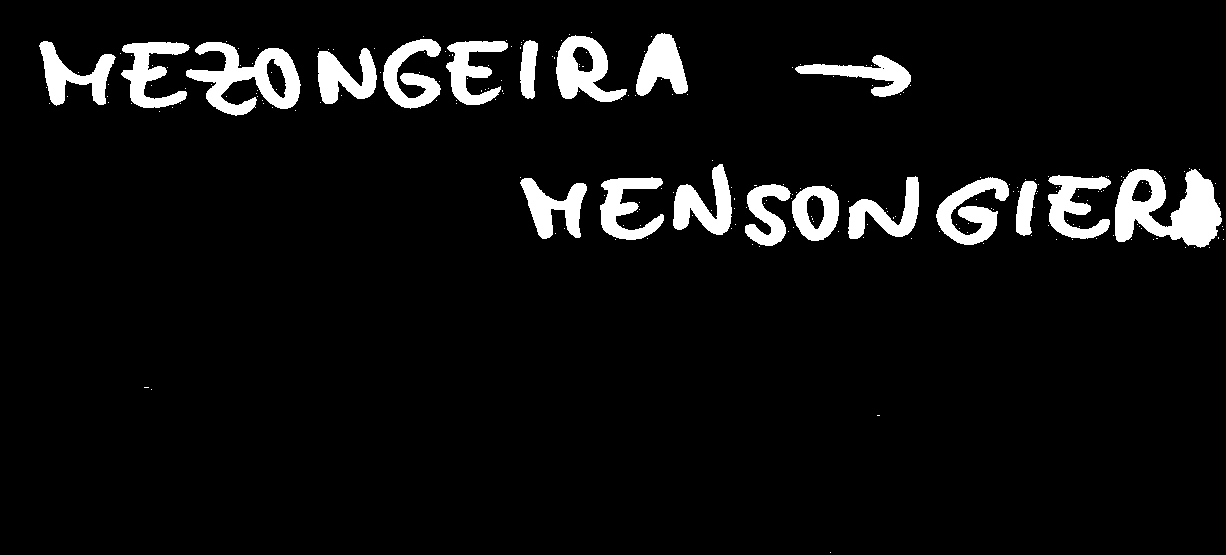 MEZONGEIRA →
MENSONGIER